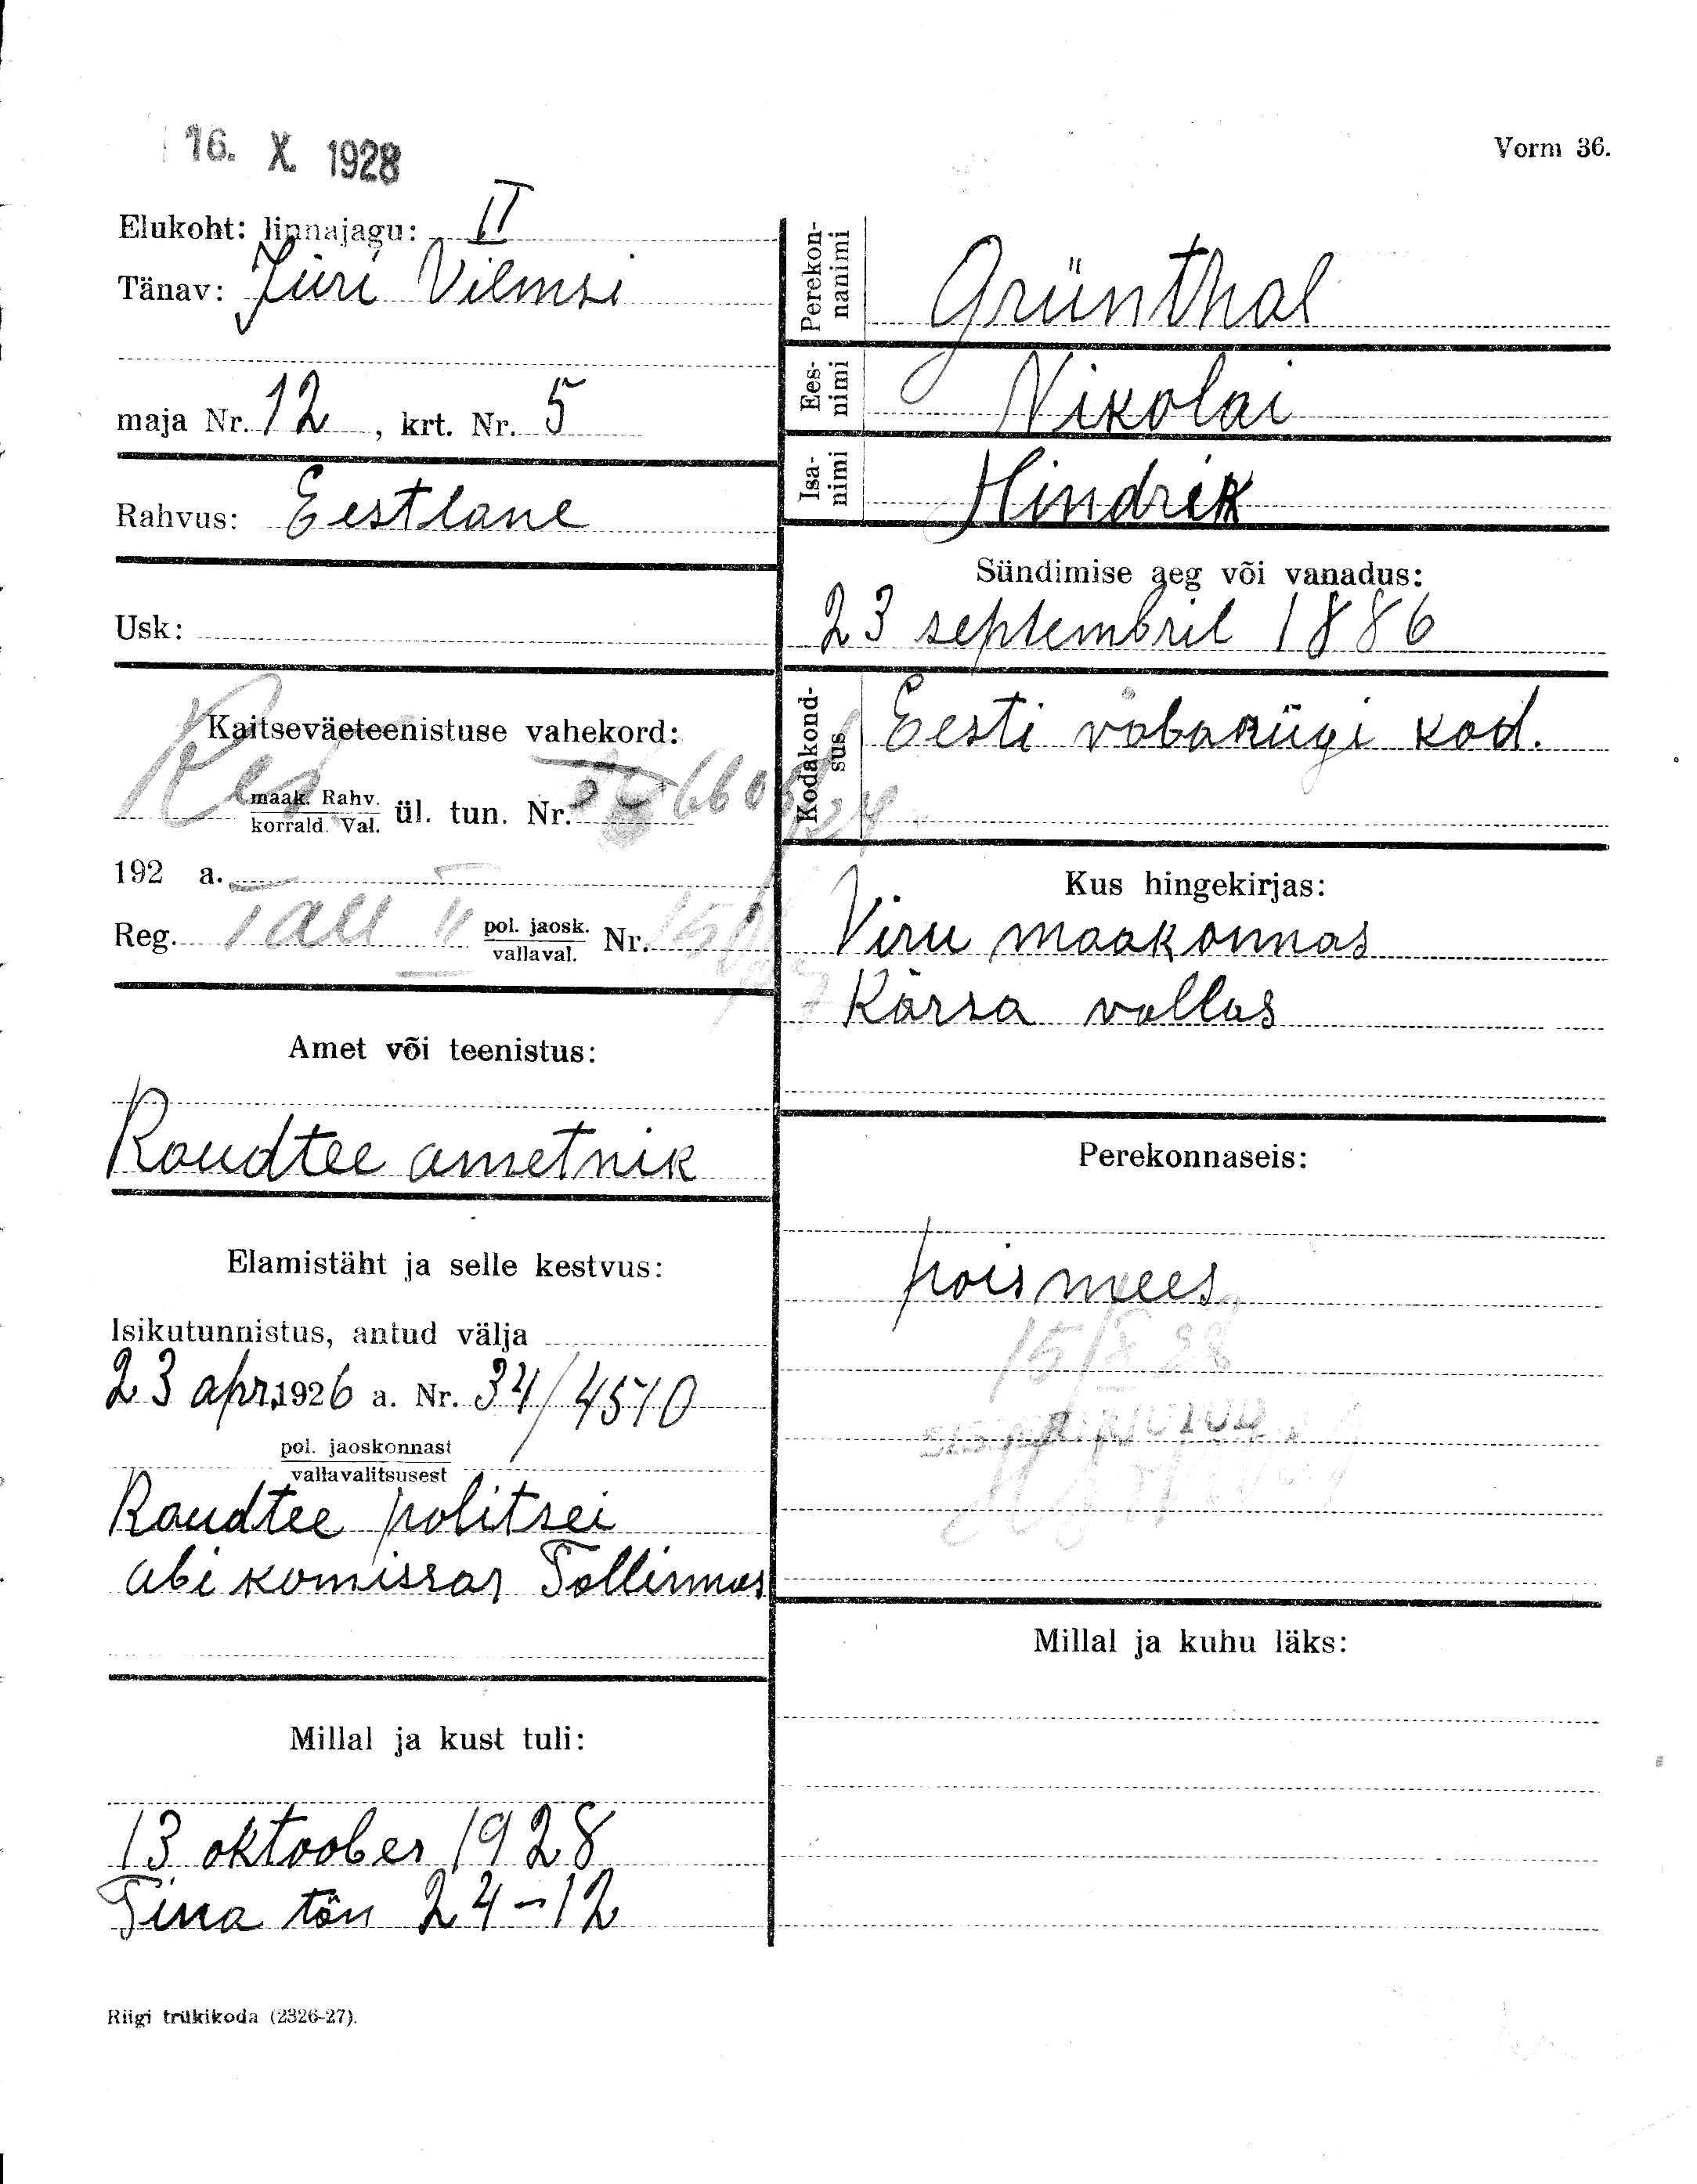 16. X. 1928
Vorm 36.
Elukoht: linnajagu: II
Tänav: Jüri Vilmsi
maja Nr. 12, krt. Nr. 5
Rahvus: Eestlane
Usk:
Kaitseväeteenistuse vahekord:
Res
maak. Rahv.
korrald. Val. ül. tun. Nr.
192 a.
Reg. Tall II pol. jaosk.
vallaval. Nr.
Amet või teenistus:
Raudtee ametnik
Elamistäht ja selle kestvus:
Isikutunnistus, antud välja
23 apr. 1926 a. Nr. 34/4510
pol. jaoskonnast
vallavalitsusest
Raudtee politsei
abi komissar Tallinnas
Millal ja kust tuli:
13 oktoober 1928
Tina tän 24-12
Perekon-
nanimi
Grünthal
Ees-
nimi
Nikolai
Isa-
nimi
Hindrik
Sündimise aeg või vanadus:
23 septembril 1886
Kodakond-
sus
Eesti vabariigi kod.
Kus hingekirjas:
Viru maakonnas
Kärsa vallas
Perekonnaseis:
poismees
15/X 28
SISSE KIRJUTUD
Millal ja kuhu läks:
Riigi trükikoda (2326-27).